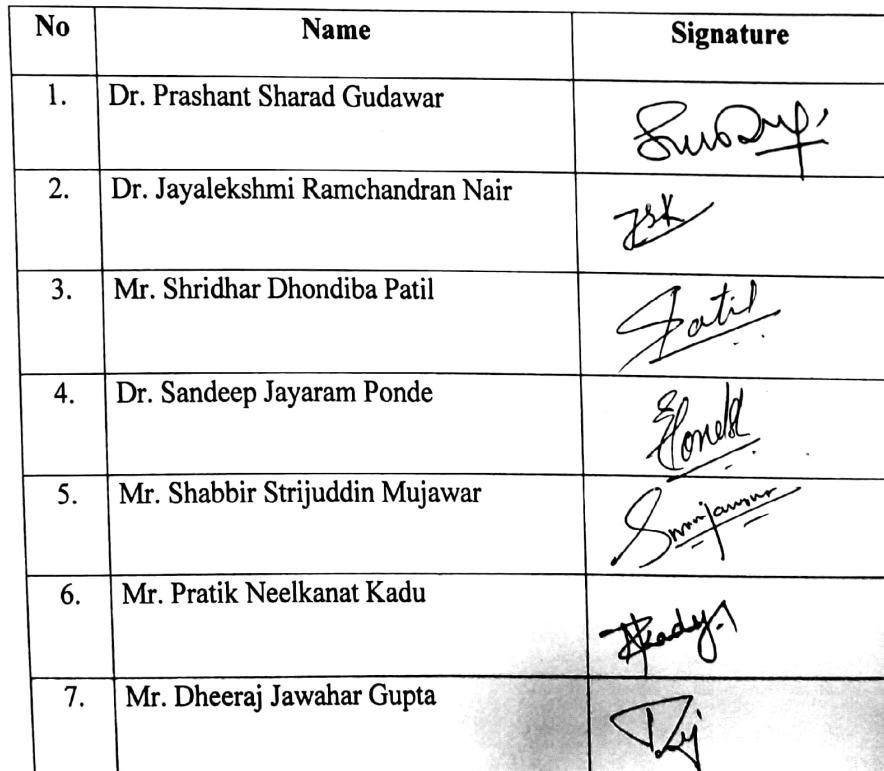 No Name Signature
1. Dr. Prashant Sharad Gudawar
2. Dr. Jayalekshmi Ramchandran Nair
3. Mr. Shridhar Dhondiba Patil Patil
4. Dr. Sandeep Jayaram Ponde
5. Mr. Shabbir Strijuddin Mujawar
6. Mr. Pratik Neelkanat Kadu
7. Mr. Dheeraj Jawahar Gupta